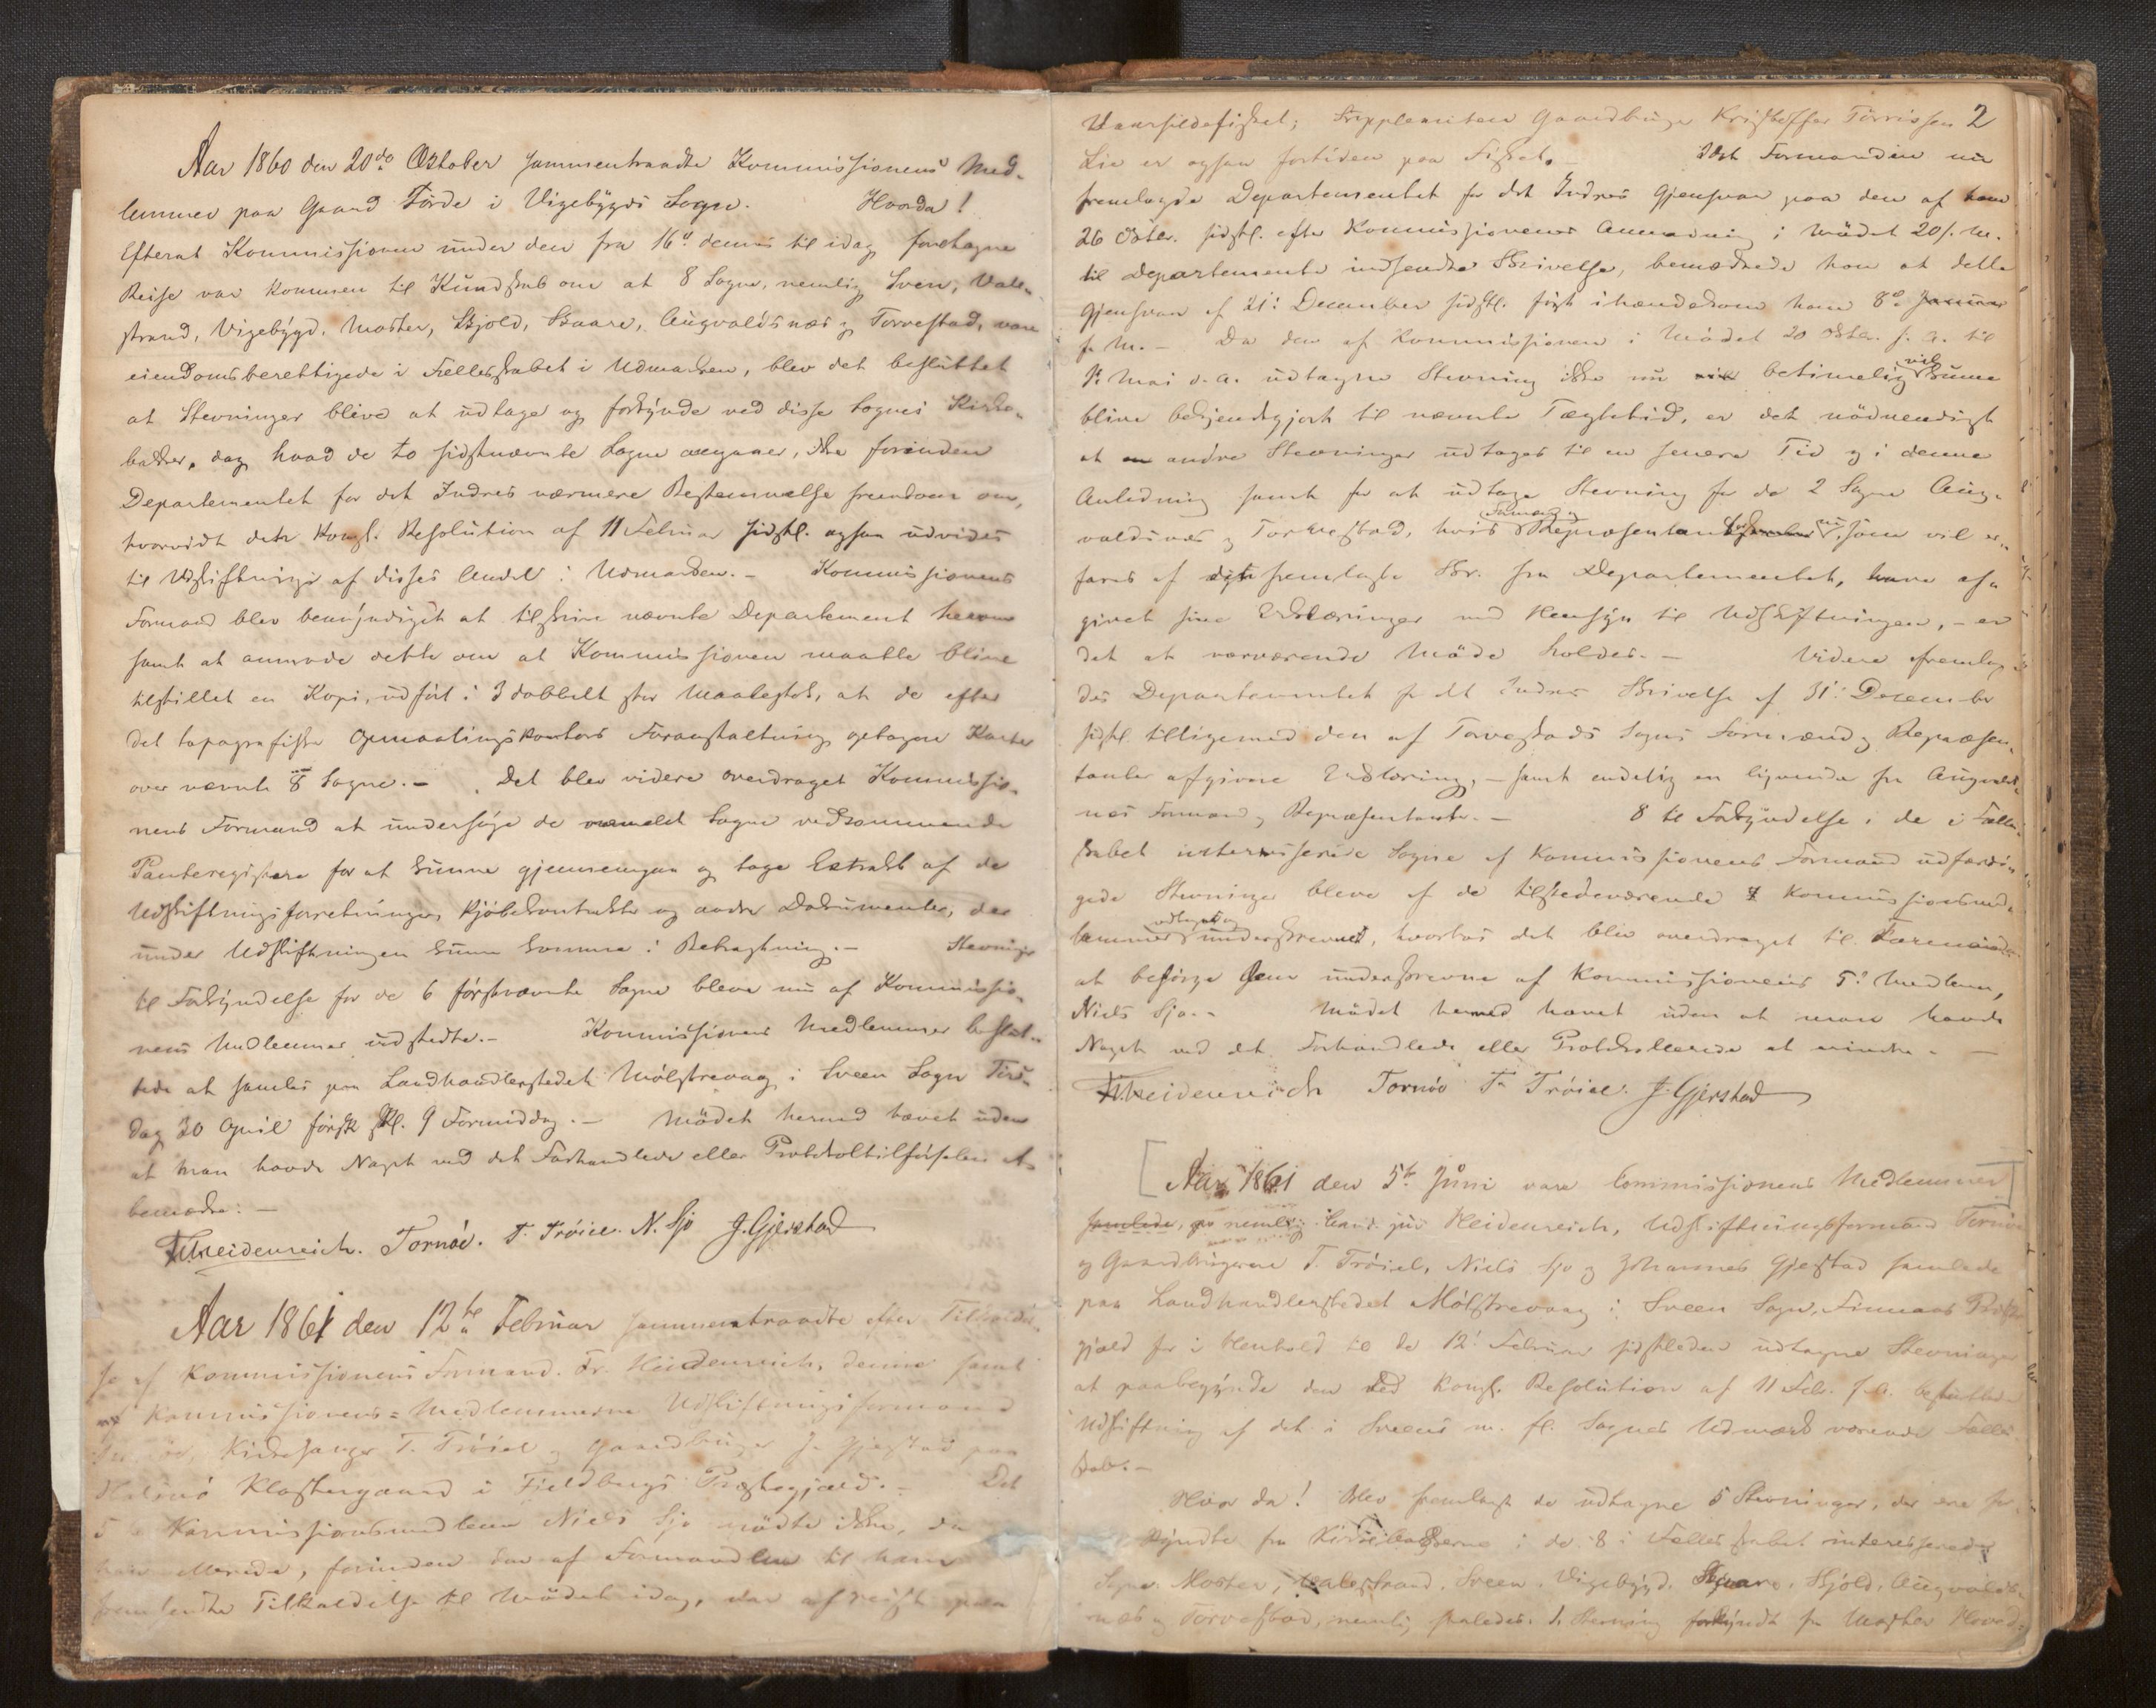 Aar 1860 den 20de Oktober sammentraadte Kommissionens Med-
lemmer paa Gaard Förde i Vigebygds Sogn. Hvorda!
Efterat Kommissionen under den fra 16de dennes til idag foretagne
Reise var kommen til Kundskab om at 8 Sogne, nemlig Sveen, Vale-
strand, Vigebygd, Moster, Skjold, Skaare, Augvaldsnæs og Torvestad, vare
eiendomsberettigede i Fællesskabet i Udmarken, blev det besluttet
at Stevninger bleve at udtage og forkynde ved disse Sognes Kirke-
bakker, dog hvad de to sidstnævnte Sogne angaaer, ikke forinden
Departementet for det Indres nærmere Bestemmelse fremkom om,
hvorvidt den Kongl. Resolution af 11 Februar sidstl. ogsaa udvides
til Udskiftning af disses Andel i Udmarken. - Kommissionens
Formand blev bemyndiget at tilskrive nævnte Departement herom
samt at anmode dette om at Kommissionen maatte blive
tilstillet en Kopi, udført i 3 dobbelt stor Maalestok, at de efter
det topografiske Opmaalingskontors Foranstaltning optagne Karter
over nævnte 8 Sogne. - Det blev videre overdraget Kommissio-
nens Formand at undersöge de anmeldt Sogne vedkommende
Panteregistere for at kunne gjennemgaa og tage Extrakt af de
Udskiftningsforretninger, Kjöbekontrakter og andre Dokumenter, der
under Udskiftningen kunne komme i Betragtning. - Stevninger
til Forkyndelse for de 6 förstnævnte Sogne bleve nu af Kommissio-
nens Medlemmer udstedte. - Kommissionens Medlemmer beslut-
tede at samles paa Landhandlerstedet Mölstrevaag i Sveen Sogn Tirs-
dag 30 April førstk. Kl. 9 Formiddag. - Mödet hermed hævet uden
at man havde Noget ved det Forhandlede eller Protokoltilførselen at
bemærke. -
Fr. Heidenreich. Tornöe. T. Tröiel. N. Sjo J. Gjerstad
Aar 1861 den 12te Februar sammentraadte efter Tilkaldel-
se af Kommissionens Formand, Fr. Heidenreich, denne samt
Kommissionens-Medlemmerne Udskiftningsformand
Kirkesanger T. Tröiel og Gaardbruger J. Gjerstad paa
Halsnö Klostergaard i Fjeldbergs Præstegjæld. - Det
5te Kommissionsmedlem Niels Sjo mödte ikke, da
han allerede, forinden den af Formanden til ham
fremsendte Tilkaldelse til Mödet idag, var afreist paa
2
Vaarsildefisket; Suppleanten Gaardbruger Kristoffer Törrissen
Lie er ogsaa fortiden paa Fisket. - Idet Formanden nu
fremlagde Departementet for det Indres Gjensvar paa den af ham
26 Okter. sidstl. efter Kommissionens Anmodning i Mödet 20/. M.
til Departementet indsendte Skrivelse, bemærkede han at dette
Gjensvar af 21de December sidstl. først ihændekom ham 8de Januar
f. M. - Da den af Kommissionen i Mödet 20 Okter. f. A. til
1ste Mai d. A. udtagne Stevning ikke nu betimelig vil kunne
blive bekjendtgjort til nævnte Tægtetid, er det nödvendigt
at andre Stevninger udtages til en senere Tid og i denne
Anledning samt for at udtage Stevning for de 2 Sogne Aug-
valdsnæs og Torvestad, hvis Formænd og Repræsentantskaber nu, som vil er-
fares af fremlagte Skr. fra Departementet, have af-
givet sine Erklæringer med Hensyn til Udskiftningen, - er
det at nærværende Möde holdes. - Videre fremlag-
des Departementet for det Indres Skrivelse af 31te December
sidstl. tilligemed den af Torvestads Sogns Formænd og Repræsen-
tanter afgivne Erklæring, - samt endelig en lignende fra Augvalds-
næs Formænd og Repræsentanter. - 8 til Forkyndelse i de i Fælle-
skabet interesserede Sogne af Kommissionens Formand udfærdi-
gede Stevninger bleve af de tilstedeværende 4 Kommissionsmed-
lemmer udtagne og underskrevne, hvorhos det blev overdraget til Formanden
at besörge dem underskrevne af Kommissionens 5te Medlem,
Niels Sjo. - Mödet hermed hævet uden at man havde
Noget ved det Forhandlede eller Protokollerede at erindre. -
Fr. Heidenreich Tornöe T. Tröiel. J. Gjerstad
Aar 1861 den 5te Juni vare Commissionens Medlemmer
samlede, nemlig Cand. jur. Heidenreich, Udskiftningsformand Tornöe
og Gaardbrugerne T. Tröiel, Niels Sjo og Johannes Gjerstad samlede
paa Landhandlerstedet Mölstrevaag i Sveen Sogn, Finnaas Præste-
gjæld for i Henhold til de 12te Februar sidstleden udtagne Stevninger
at paabegynde den ved Kongl. Resolution af 11 Feb. f. A. besluttede
Udskiftning af det i Sveens m. fl. Sognes Udmark værende Fælles-
skab. -
Hvor da! Blev fremlagt de udtagne 5 Stevninger, der ere for-
kyndte fra Kirkebakkerne i de 8 i Fællesskabet interesserede
Sogne Moster, Valestrand, Sveen, Vigebygd, Skaare, Skjold, Augvalds-
næs og Torvestad, nemlig saaledes: 1. Stevning forkyndt fra Moster Hoved-